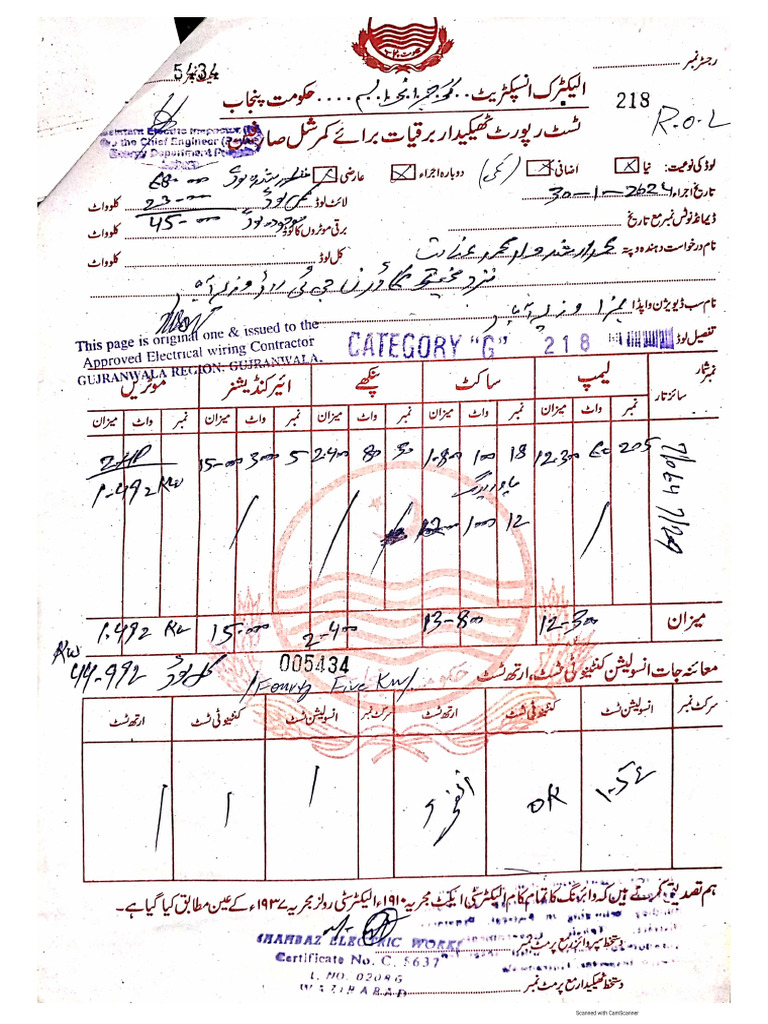 رجسٹر نمبر
5434
الیکٹرک انسپکٹریٹ .. گوجرانوالہ .... حکومت پنجاب
218
R.O.L
ٹسٹ رپورٹ ٹھیکیدار برقیات برائے کمرشل صارفین
Assistant Electric Inspector
the Chief Engineer (Power)
Energy Department
لوڈ کی نوعیت: نیا اضافی (کمی) دوبارہ اجراء عارضی منظور شدہ لوڈ 68-00
تاریخ اجراء 30-1-2024 لائٹ لوڈ کمی لوڈ 23-00 کلو واٹ
ڈیمانڈ نوٹس نمبر مع تاریخ برقی موٹروں کا لوڈ موجودہ لوڈ 45-00 کلو واٹ
نام درخواست دهنده و پتہ محمد ارشد ولد محمد عنائت کل لوڈ کلو واٹ
نام سب ڈویژن واپڈا
This page is original one & issued to the
Approved Electrical wiring Contractor
GUJRANWALA REGION. GUJRANWALA.
CATEGORY "G" 218
تفصیل لوڈ
نمبر شمار سائز تار لیمپ ساکٹ پنکھے ائیر کنڈیشنز موٹریں
نمبر واٹ میزان نمبر واٹ میزان نمبر واٹ میزان نمبر واٹ میزان نمبر واٹ میزان
7/044 7/029 205 60 12-300 18 100 1-800 30 80 2-400 5 3000 15-000 2HP
1.492 Kw
پاور پلگ
12 100 12-000
میزان 12-300 13-800 2-400 15-000 1.492 Kw
005434
کل لوڈ 44.992 Kw
/Fourty Five Kw/
معائنہ جات انسولیشن کنٹینیوٹی ٹسٹ، ارتھ ٹسٹ
سرکٹ نمبر انسولیشن ٹسٹ کنٹینیوٹی ٹسٹ ارتھ ٹسٹ سرکٹ نمبر انسولیشن ٹسٹ کنٹینیوٹی ٹسٹ ارتھ ٹسٹ
OK
ہم تصدیق کرتے ہیں کہ وائرنگ کا تمام کام الیکٹرسٹی ایکٹ مجریہ ۱۹۱۰ء الیکٹرسٹی رولز مجریہ ۱۹۳۷ء کے عین مطابق کیا گیا ہے۔
دستخط سپروائزر مع پرمٹ نمبر
SHAHBAZ ELECTRIC WORKS
Certificate No. C. 5637
L. NO. 0208G
WAZIRABAD
دستخط ٹھیکیدار مع پرمٹ نمبر
Scanned with CamScanner